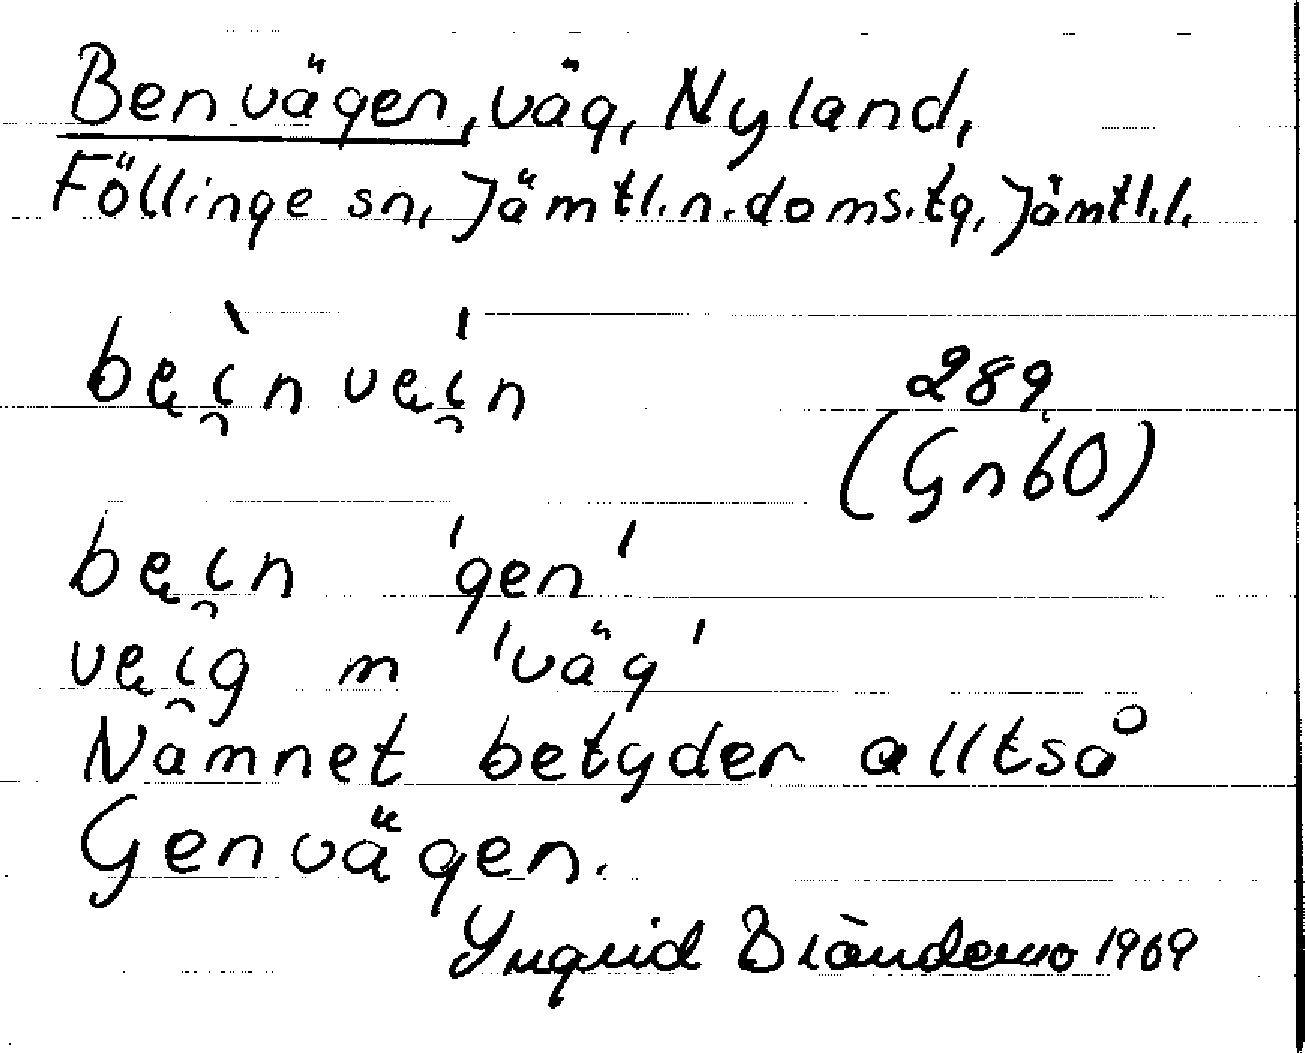 Benvägen, väg, Nyland,
Föllinge sn, Jämtl.n.doms.tg, Jämtl.l.
bèi̯nvéi̯n
289
(Gnb0)
bei̯n 'gen'
vei̯g m 'väg'
Namnet betyder alltså
Genvägen.
Yngrid Brändemo 1969